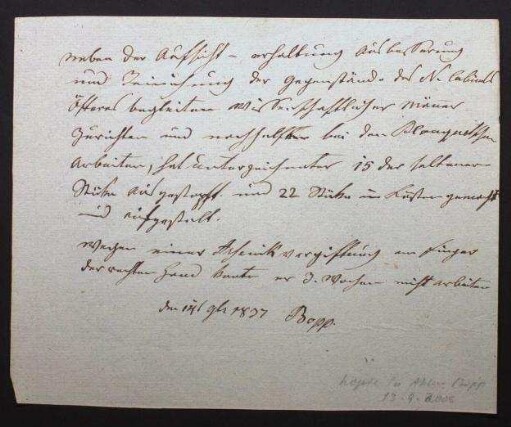 neben der Aufsicht - erhaltung Ausbesserung
und Reinichung der Gegenstände des N. Cabinets
Öfteres begleiten wissenschaftlicher Mäner
Zurichten und nachhelfen bei den
Arbeiten, hat Unterzeichneter 15 der seltenen
Stüke ausgestopft und 22 Stüke in Kasten gemacht
und aufgestelt.
Wegen einer Arsenik vergiftung am Finger
der rechten Hand konte er 3. Wochen nicht arbeiten
den 1837 Bopp.
13.9.2005